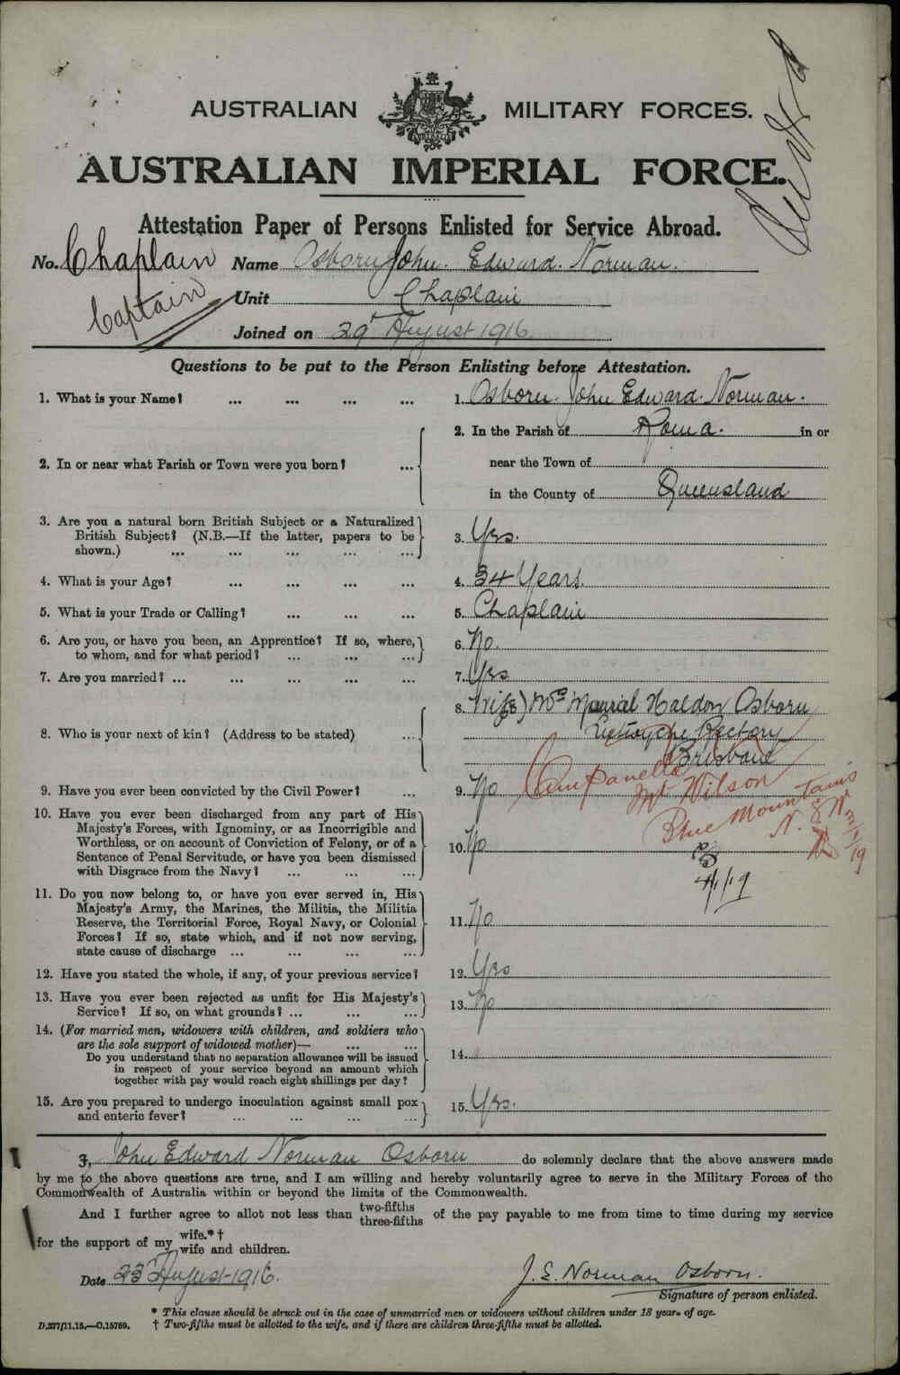 AUSTRALIAN MILITARY FORCES.
AUSTRALIAN IMPERIAL FORCE.
Attestation Paper of Persons Enlisted for Service Abroad.
No. Chaplain Name Osborn John Edward Norman.
Captain Unit Chaplain
Joined on 29th August 1916.
Questions to be put to the Person Enlisting before Attestation.
1. What is your Name? ... ... ... ... 1. Osborn John Edward Norman.
2. In the Parish of Roma. in or
2. In or near what Parish or Town were you born? ... near the Town of
in the County of Queensland
3. Are you a natural born British Subject or a Naturalized
British Subject? (N.B.—If the latter, papers to be 3. Yes.
shown.) ... ... ... ...
4. What is your Age? ... ... ... 4. 34 Years
5. What is your Trade or Calling? ... ... 5. Chaplain
6. Are you, or have you been, an Apprentice? If so, where, 6. No.
to whom, and for what period? ... ... ...
7. Are you married? ... ... ... ... ... 7. Yes
8. (Wife) Mrs Haldon Osborn
8. Who is your next of kin? (Address to be stated) ... Rectory
Brisbane
9. Have you ever been convicted by the Civil Power? ... 9. No Campanella
Mt Wilson
Blue Mountains
N.S.W.
3/1/19
10. Have you ever been discharged from any part of His
Majesty's Forces, with Ignominy, or as Incorrigible and
Worthless, or on account of Conviction of Felony, or of a
Sentence of Penal Servitude, or have you been dismissed 10. No
with Disgrace from the Navy? ... ... ...
4/1/19
11. Do you now belong to, or have you ever served in, His
Majesty's Army, the Marines, the Militia, the Militia
Reserve, the Territorial Force, Royal Navy, or Colonial 11. No
Forces? If so, state which, and if not now serving,
state cause of discharge ... ... ... ...
12. Have you stated the whole, if any, of your previous service? 12. Yes
13. Have you ever been rejected as unfit for His Majesty's 13. No
Service? If so, on what grounds? ... ... ...
14. (For married men, widowers with children, and soldiers who
are the sole support of widowed mother)— ... ...
Do you understand that no separation allowance will be issued 14.
in respect of your service beyond an amount which
together with pay would reach eight shillings per day?
15. Are you prepared to undergo inoculation against small pox 15. Yes.
and enteric fever? ... ... ... ...
I, John Edward Norman Osborn do solemnly declare that the above answers made
by me to the above questions are true, and I am willing and hereby voluntarily agree to serve in the Military Forces of the
Commonwealth of Australia within or beyond the limits of the Commonwealth.
And I further agree to allot not less than two-fifths three-fifths of the pay payable to me from time to time during my service
for the support of my wife.*† wife and children.
Date 23rd August 1916. J. E. Norman Osborn.
Signature of person enlisted.
* This clause should be struck out in the case of unmarried men or widowers without children under 18 years of age.
D.277/11.15.—C.15759. † Two-fifths must be allotted to the wife, and if there are children three-fifths must be allotted.